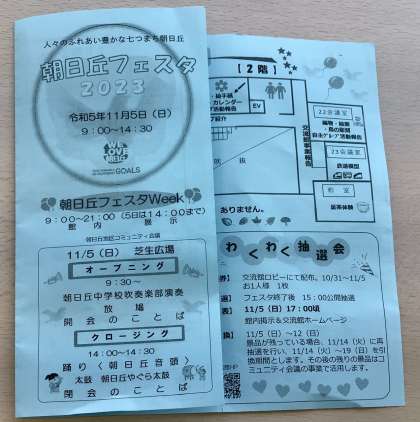 人々のふれあい豊かな七つまち朝日丘
朝日丘フェスタ
2023
令和5年11月5日(日)
9:00~14:30
WE LOVE
GOALS
朝日丘フェスタWeek
9:00~21:00(5日は14:00まで)
館内展示
朝日丘地区コミュニティ会議
11/5(日) 芝生広場
オープニング
9:30~
朝日丘中学校吹奏楽部演奏
放場
開会のことば
クロージング
14:00~14:30
踊り〈朝日丘音頭〉
太鼓 朝日丘やぐら太鼓
閉会のことば
【2階】
カレンダー
活動報告
EV
プ紹介
吹抜
交流館事業報告
22会議室
自主グループ活動報告
23会議室
鉄道模型
和室
ありません。
わくわく抽選会
券) 交流館ロビーにて配布。10/31~11/5
お1人様 1枚
選) フェスタ終了後 15:00公開抽選
表) 11/5(日)17:00頃
館内掲示&交流館ホームページ
換) 11/5(日)~12(日)
景品が残っている場合、11/14(火)に再
抽選を行い、11/14(火)~19(日)を引
換期間とします。その後の残りの景品はコ
ミュニティ会議の事業で活用します。